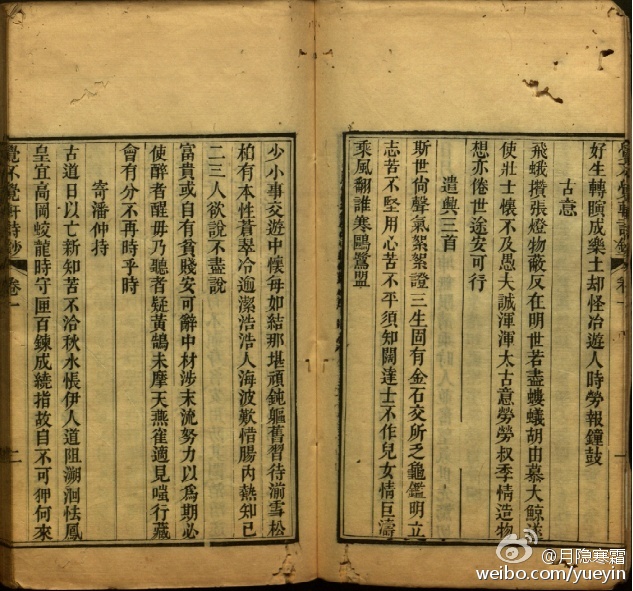 好生轉瞬成樂土却怪冶遊人時勞報鐘鼓
古意
飛蛾攢張燈物蔽反在明世若盡螻蟻胡由慕大鯨
使壯士懷不及愚大誠渾渾太古意勞勞叔季情造物
想亦倦世途安可行
遣興三首
斯世尙聲氣絮絮證三生固有金石交所乏龜鑑明立
志苦不堅用心苦不平須知闊達士不作兒女情巨濤
乘風翻誰寒鷗鷺盟
卷一
一
少小事交遊中懷每如結那堪頑鈍軀舊習待湔雪松
柏有本性蒼翠冷逾潔浩浩人海波歎惜腸內熱知已
二三人欲說不盡說
富貴或自有貧賤安可辭中材涉末流努力以爲期必
使醉者醒毋乃聽者疑黃鵠未摩天燕雀適見嗤行藏
會有分不再時乎時
寄潘仲持
古道日以亡新知苦不洽秋水悵伊人道阻溯洄怯鳳
皇宜高岡蛟龍時守匣百鍊成繞指故自不可狎何來
覺不覺軒詩鈔
卷一
二
@月隐寒霜
weibo.com/yueyin